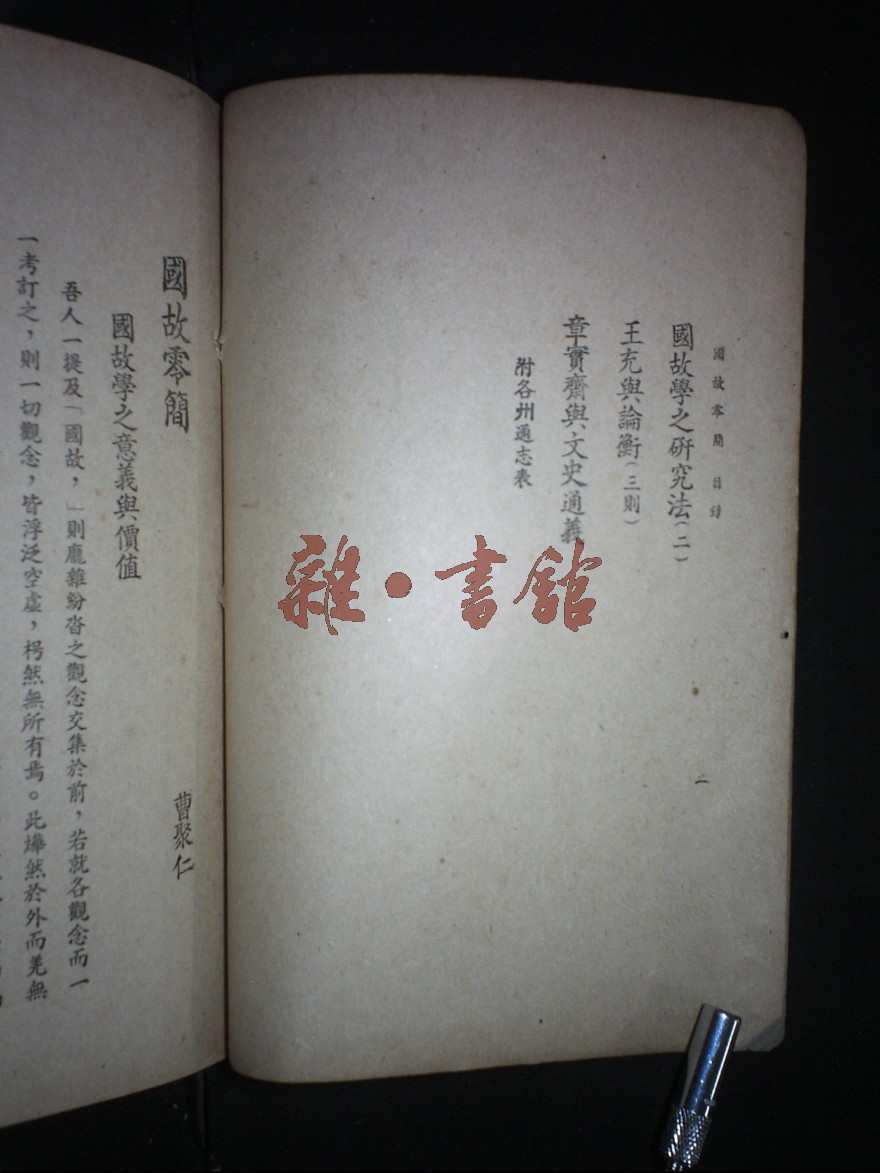 國故零簡目錄
國故學之研究法(二)
王充與論衡(三則)
章實齋與文史通義
附各州通志表
二
雜·書館
國故零簡
曹聚仁
國故學之意義與價值
吾人一提及「國故,」則龐雜紛沓之觀念交集於前,若就各觀念而一
一考訂之,則一切觀念,皆浮泛空虛,枵然無所有焉。此燁然於外而羌無